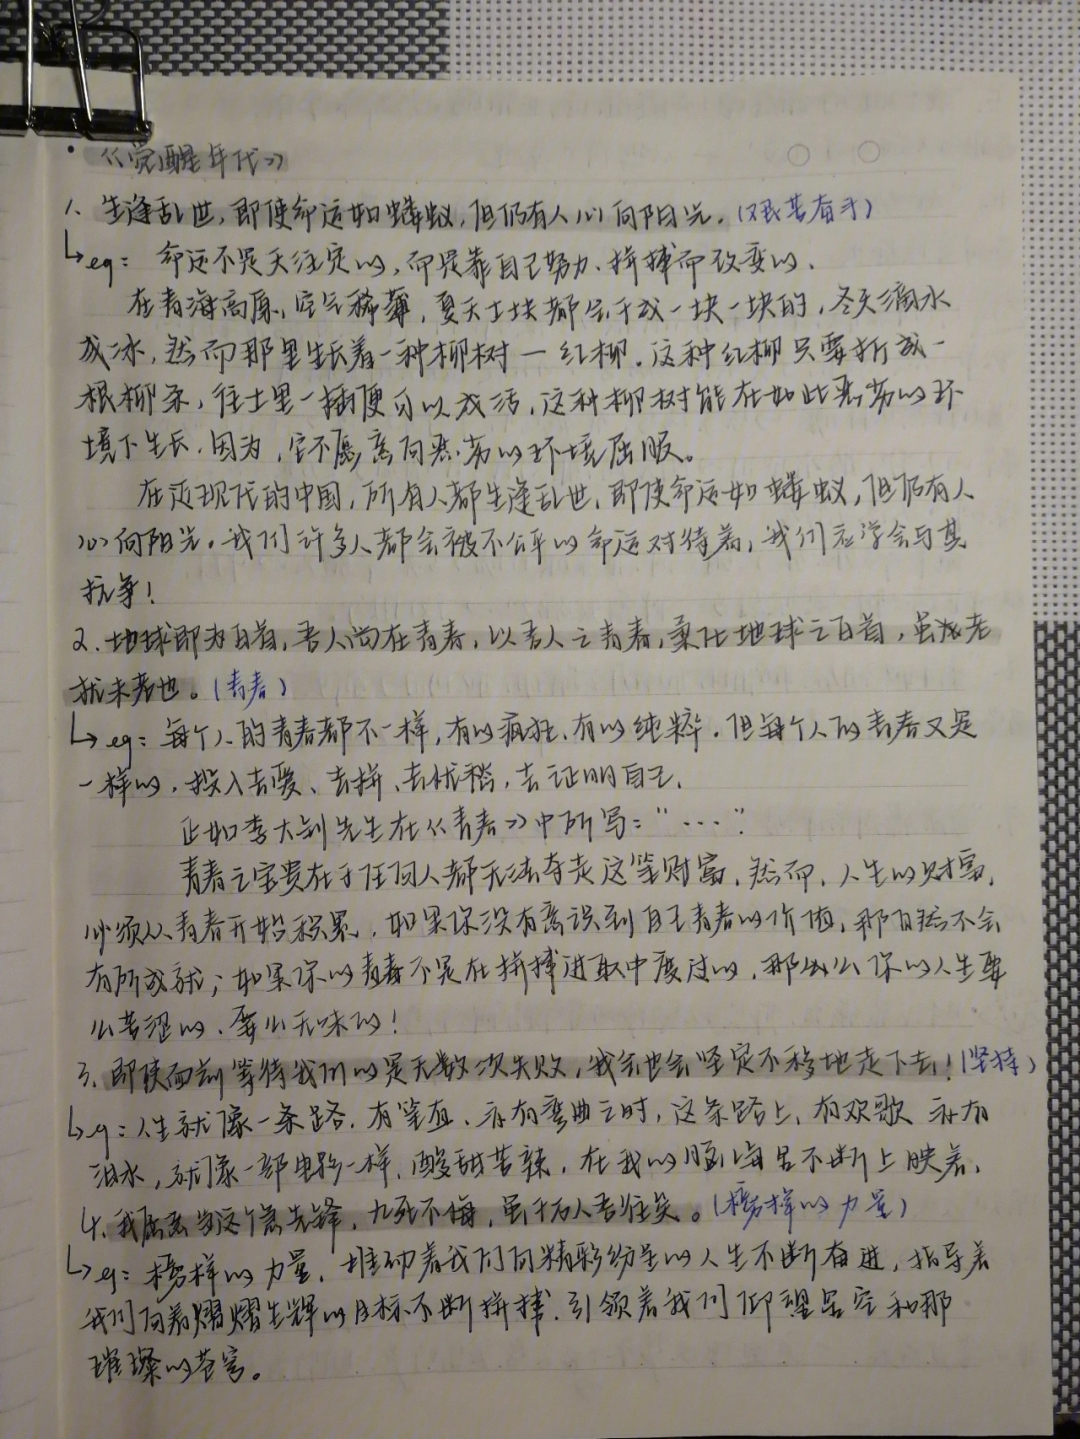 ·《觉醒年代》
1、生逢乱世,即使命运如蝼蚁,但仍有人心向阳光。(艰苦奋斗)
↳eg: 命运不是天注定的,而是靠自己努力、拼搏而改变的、
在青海高原,空气稀薄,夏天土块都会干成一块一块的,冬天滴水
成冰,然而那里生长着一种柳树一红柳.这种红柳只要折成一
根柳条,往土里一插便可以成活,这种柳树能在如此恶劣的环
境下生长.因为,它不愿意向恶劣的环境屈服。
在近现代的中国,所有人都生逢乱世,即使命运如蝼蚁,但仍有人
心向阳光.我们许多人都会被不公平的命运对待着,我们应学会与其
抗争!
2.地球即为白首,吾人尚在青春,以吾人之青春,柔化地球之白首,虽老
犹未老也。(青春)
↳eg: 每个人的青春都不一样,有的疯狂、有的纯粹.但每个人的青春又是
一样的,投入去爱、去拼、去忧愁,去证明自己.
正如李大钊先生在《青春》中所写:"…"
青春之宝贵在于任何人都无法夺走这笔财富,然而,人生的财富,
必须从青春开始积累,如果你没有意识到自己青春的价值,那自然不会
有所成就;如果你的青春不是在拼搏进取中度过的,那么你的人生要
么苦涩的、要么无味的!
3、即使面前等待我们的是无数次失败,我会坚定不移地走下去!(坚持)
↳eg:人生就像一条路.有笔直、亦有弯曲之时,这条路上,有欢歌 亦有
泪水,就像一部电影一样,酸甜苦辣,在我的脑海里不断上映着.
4.我愿意当这个急先锋,九死不悔,虽千万人吾往矣。(榜样的力量)
↳eg:榜样的力量,推动着我们向精彩纷呈的人生不断奋进,指导着
我们向着熠熠生辉的目标不断拼搏.引领着我们仰望星空和那
璀璨的苍穹。